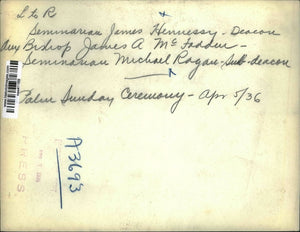 L to R
Seminarian James Hennessy - Deacon
Aux Bishop James A Mc Fadden -
Seminarian Michael Ragan - Sub-deacon
Palm Sunday Ceremony - Apr 5/36
A3693
PRESS